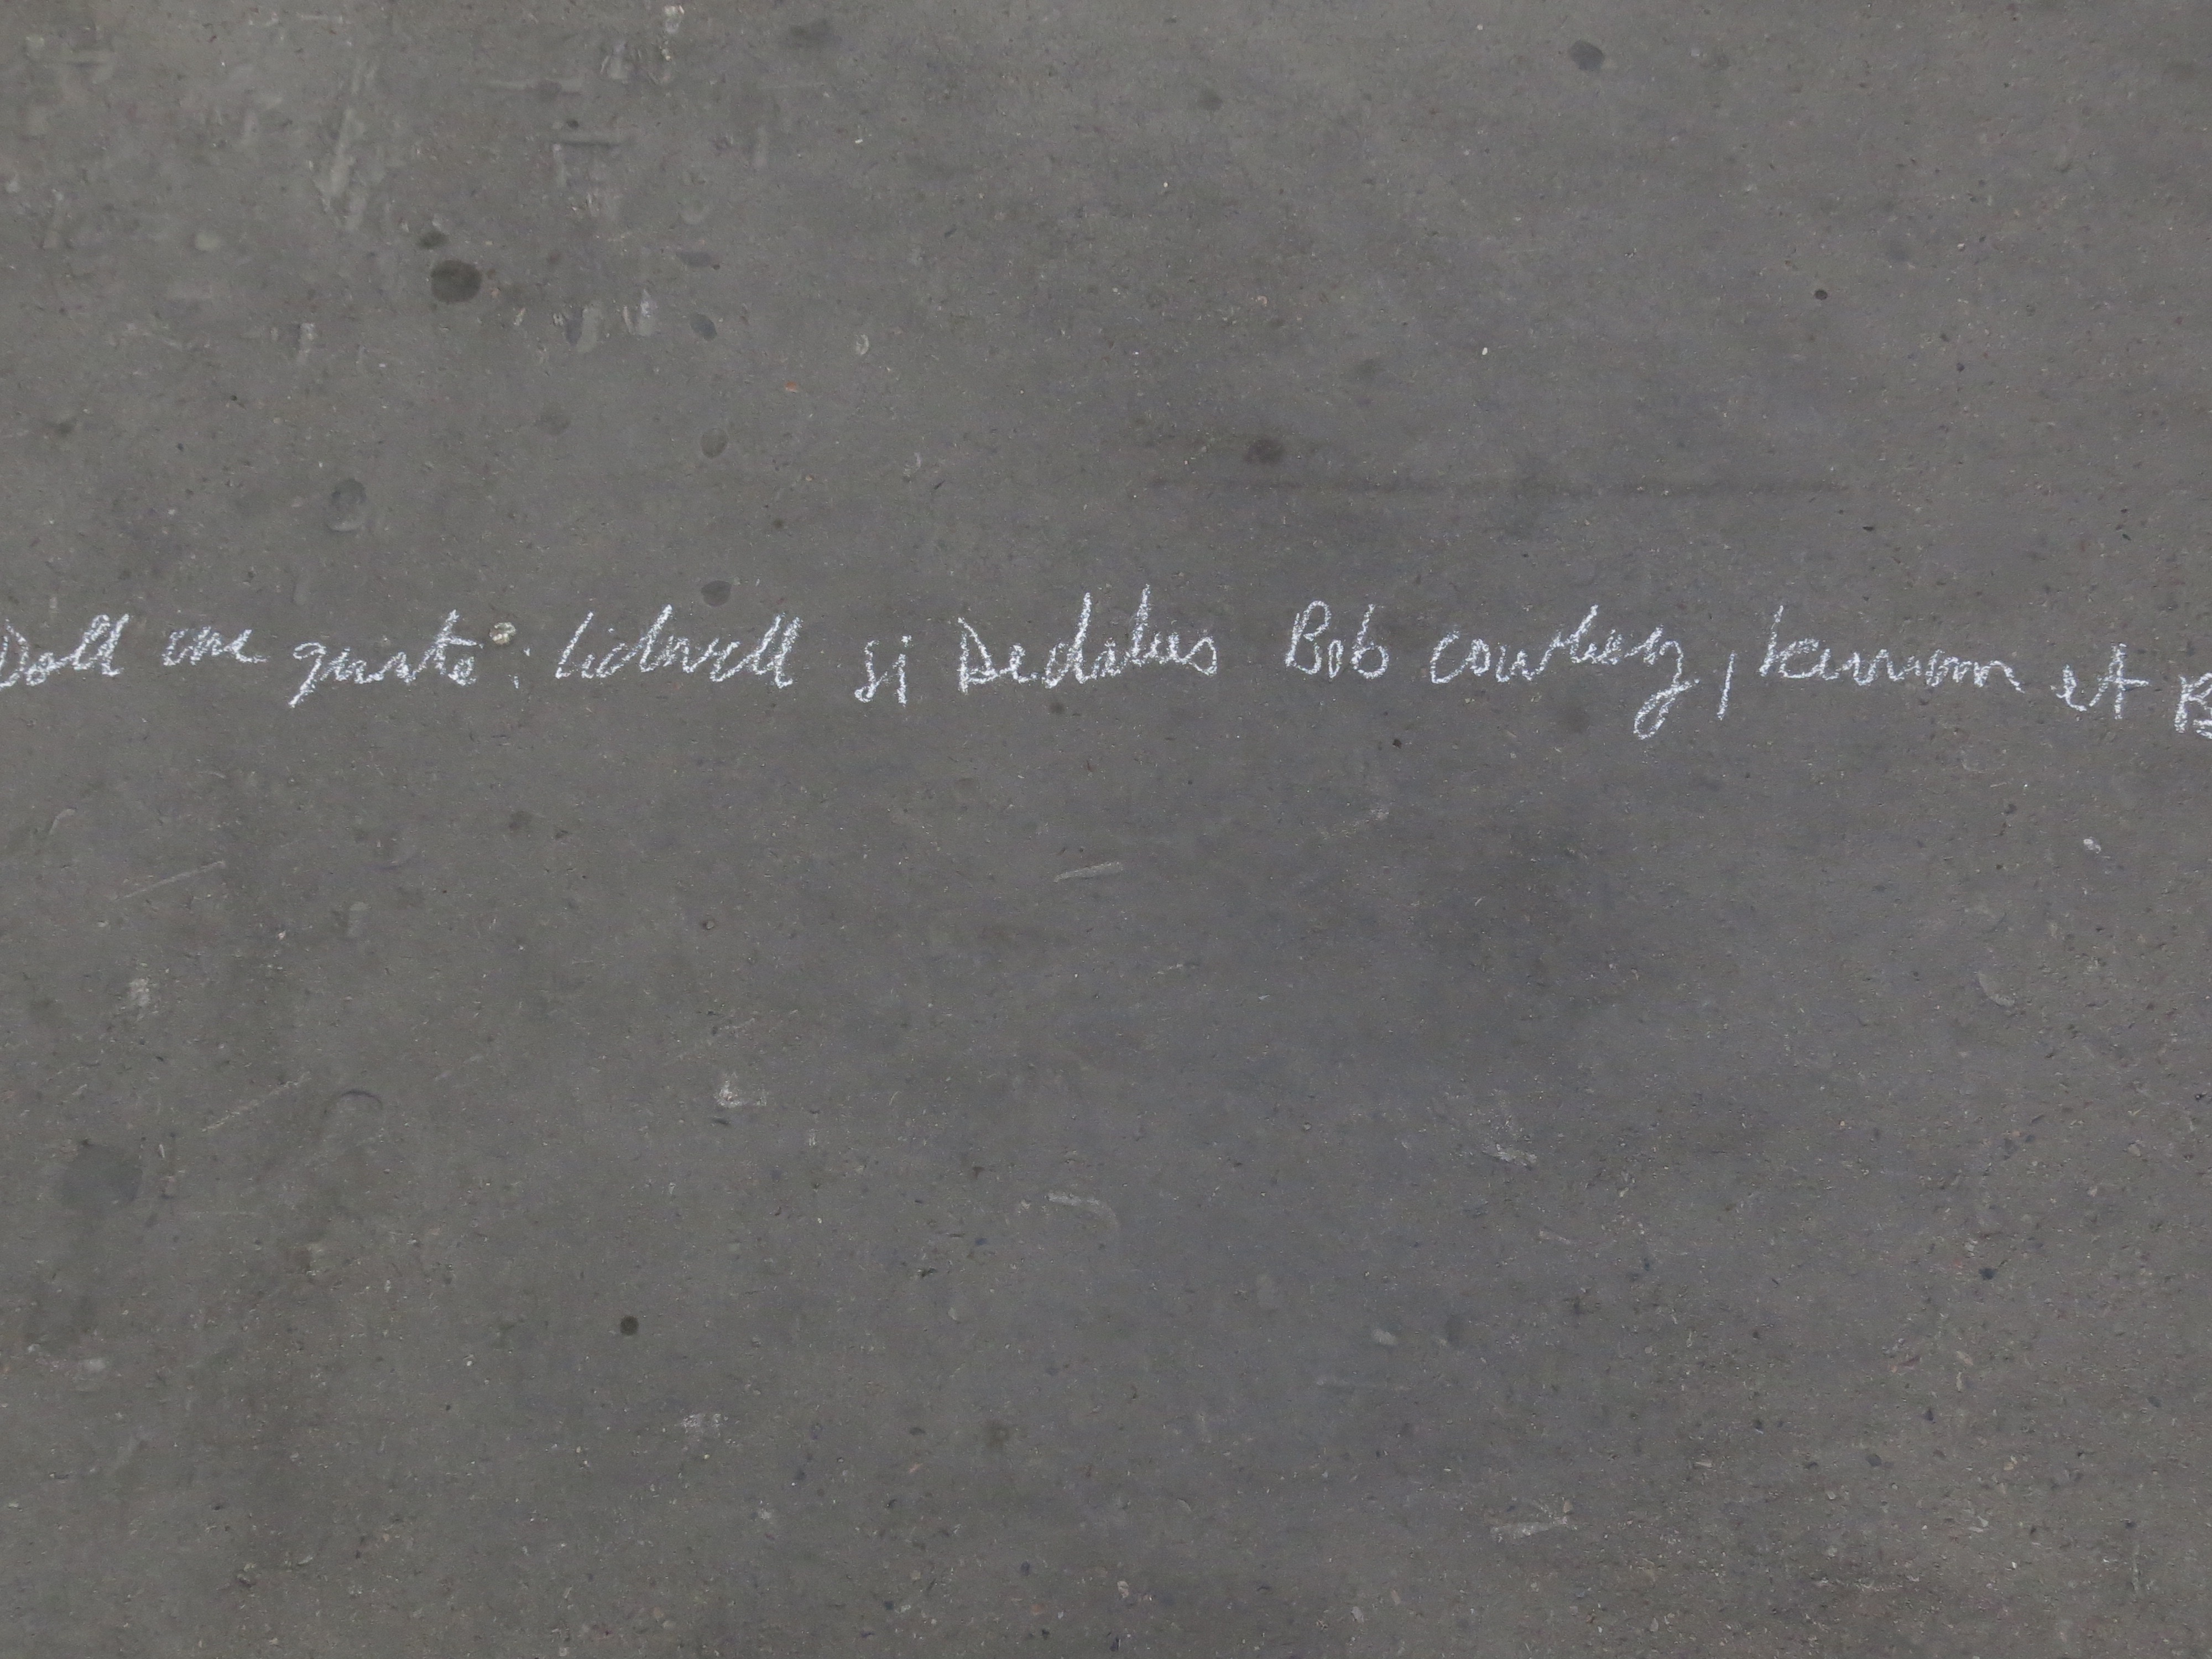 Doll une quarte : Lidwell Si Dedalus Bob Cowley, Kernan et B